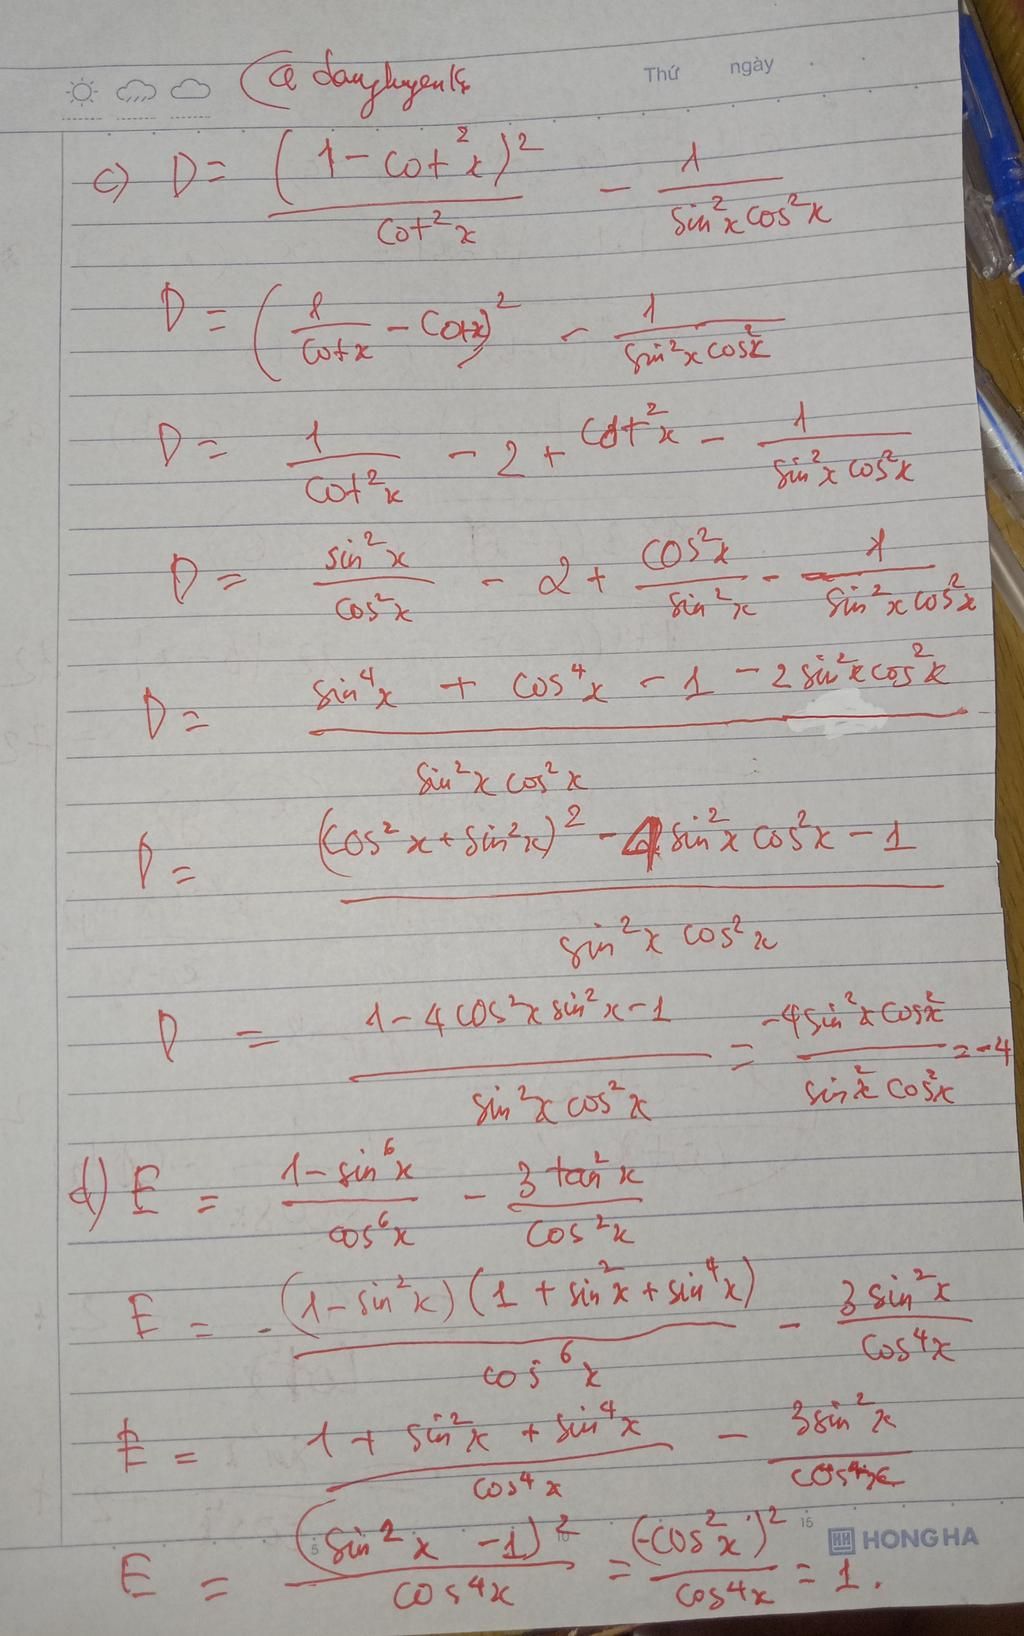 Thứ ngày
c) D = (1 - cot²x)² / cot²x - 1 / sin²x cos²x
D = (1 / cotx - cotx)² - 1 / sin²x cos²x
D = 1 / cot²x - 2 + cot²x - 1 / sin²x cos²x
D = sin²x / cos²x - 2 + cos²x / sin²x - 1 / sin²x cos²x
D = sin⁴x + cos⁴x - 1 - 2 sin²x cos²x / sin²x cos²x
D = (cos²x + sin²x)² - 4 sin²x cos²x - 1 / sin²x cos²x
D = 1 - 4 cos²x sin²x - 1 / sin²x cos²x = -4 sin²x cos²x / sin²x cos²x = -4
d) E = 1 - sin⁶x / cos⁶x - 3 tan²x / cos²x
E = (1 - sin²x) (1 + sin²x + sin⁴x) / cos⁶x - 3 sin²x / cos⁴x
E = 1 + sin²x + sin⁴x / cos⁴x - 3 sin²x / cos⁴x
E = (sin²x - 1)² / cos⁴x = (-cos²x)² / cos⁴x = 1.
5 10 15 HONG HA